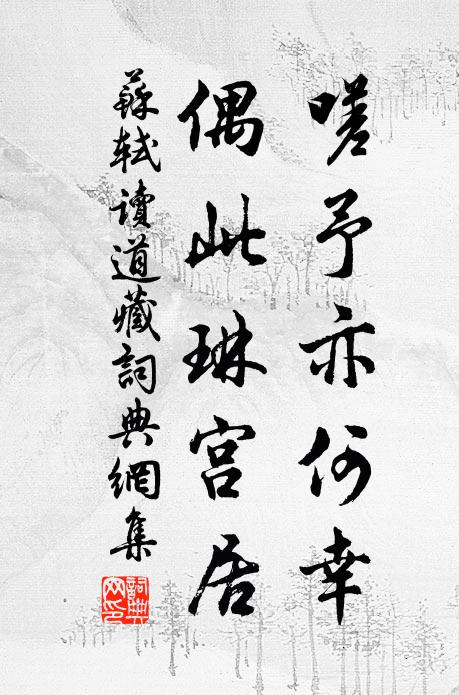 嗟予亦何幸
偶此琳宫居
蘇軾讀道藏詞典網集